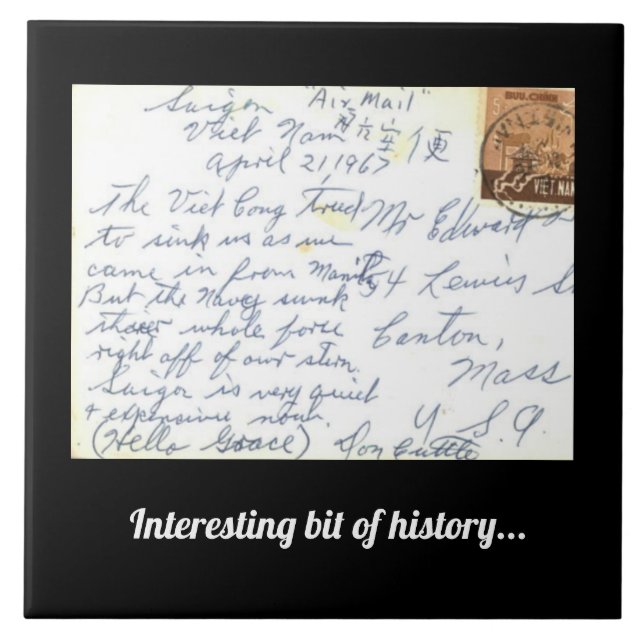 Saigon "Air Mail"
Viet Nam
便
April 21, 1967
The Viet Cong tried
to sink us as we
came in from Manila
But the Navy sunk
their whole force
right off of our stern.
Saigon is very quiet
+ expensive now.
(Hello Grace) Don Cuttle
Mr Edward
54 Lewis
Canton,
Mass
U.S.A.
BUU-CHÍNH
5
VIỆT NAM
Interesting bit of history...